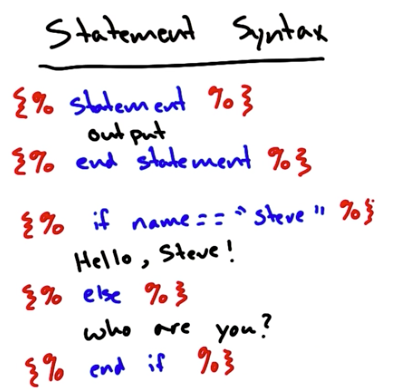 Statement Syntax
{% statement %}
output
{% end statement %}
{% if name == "steve" %}
Hello, Steve!
{% else %}
who are you?
{% end if %}